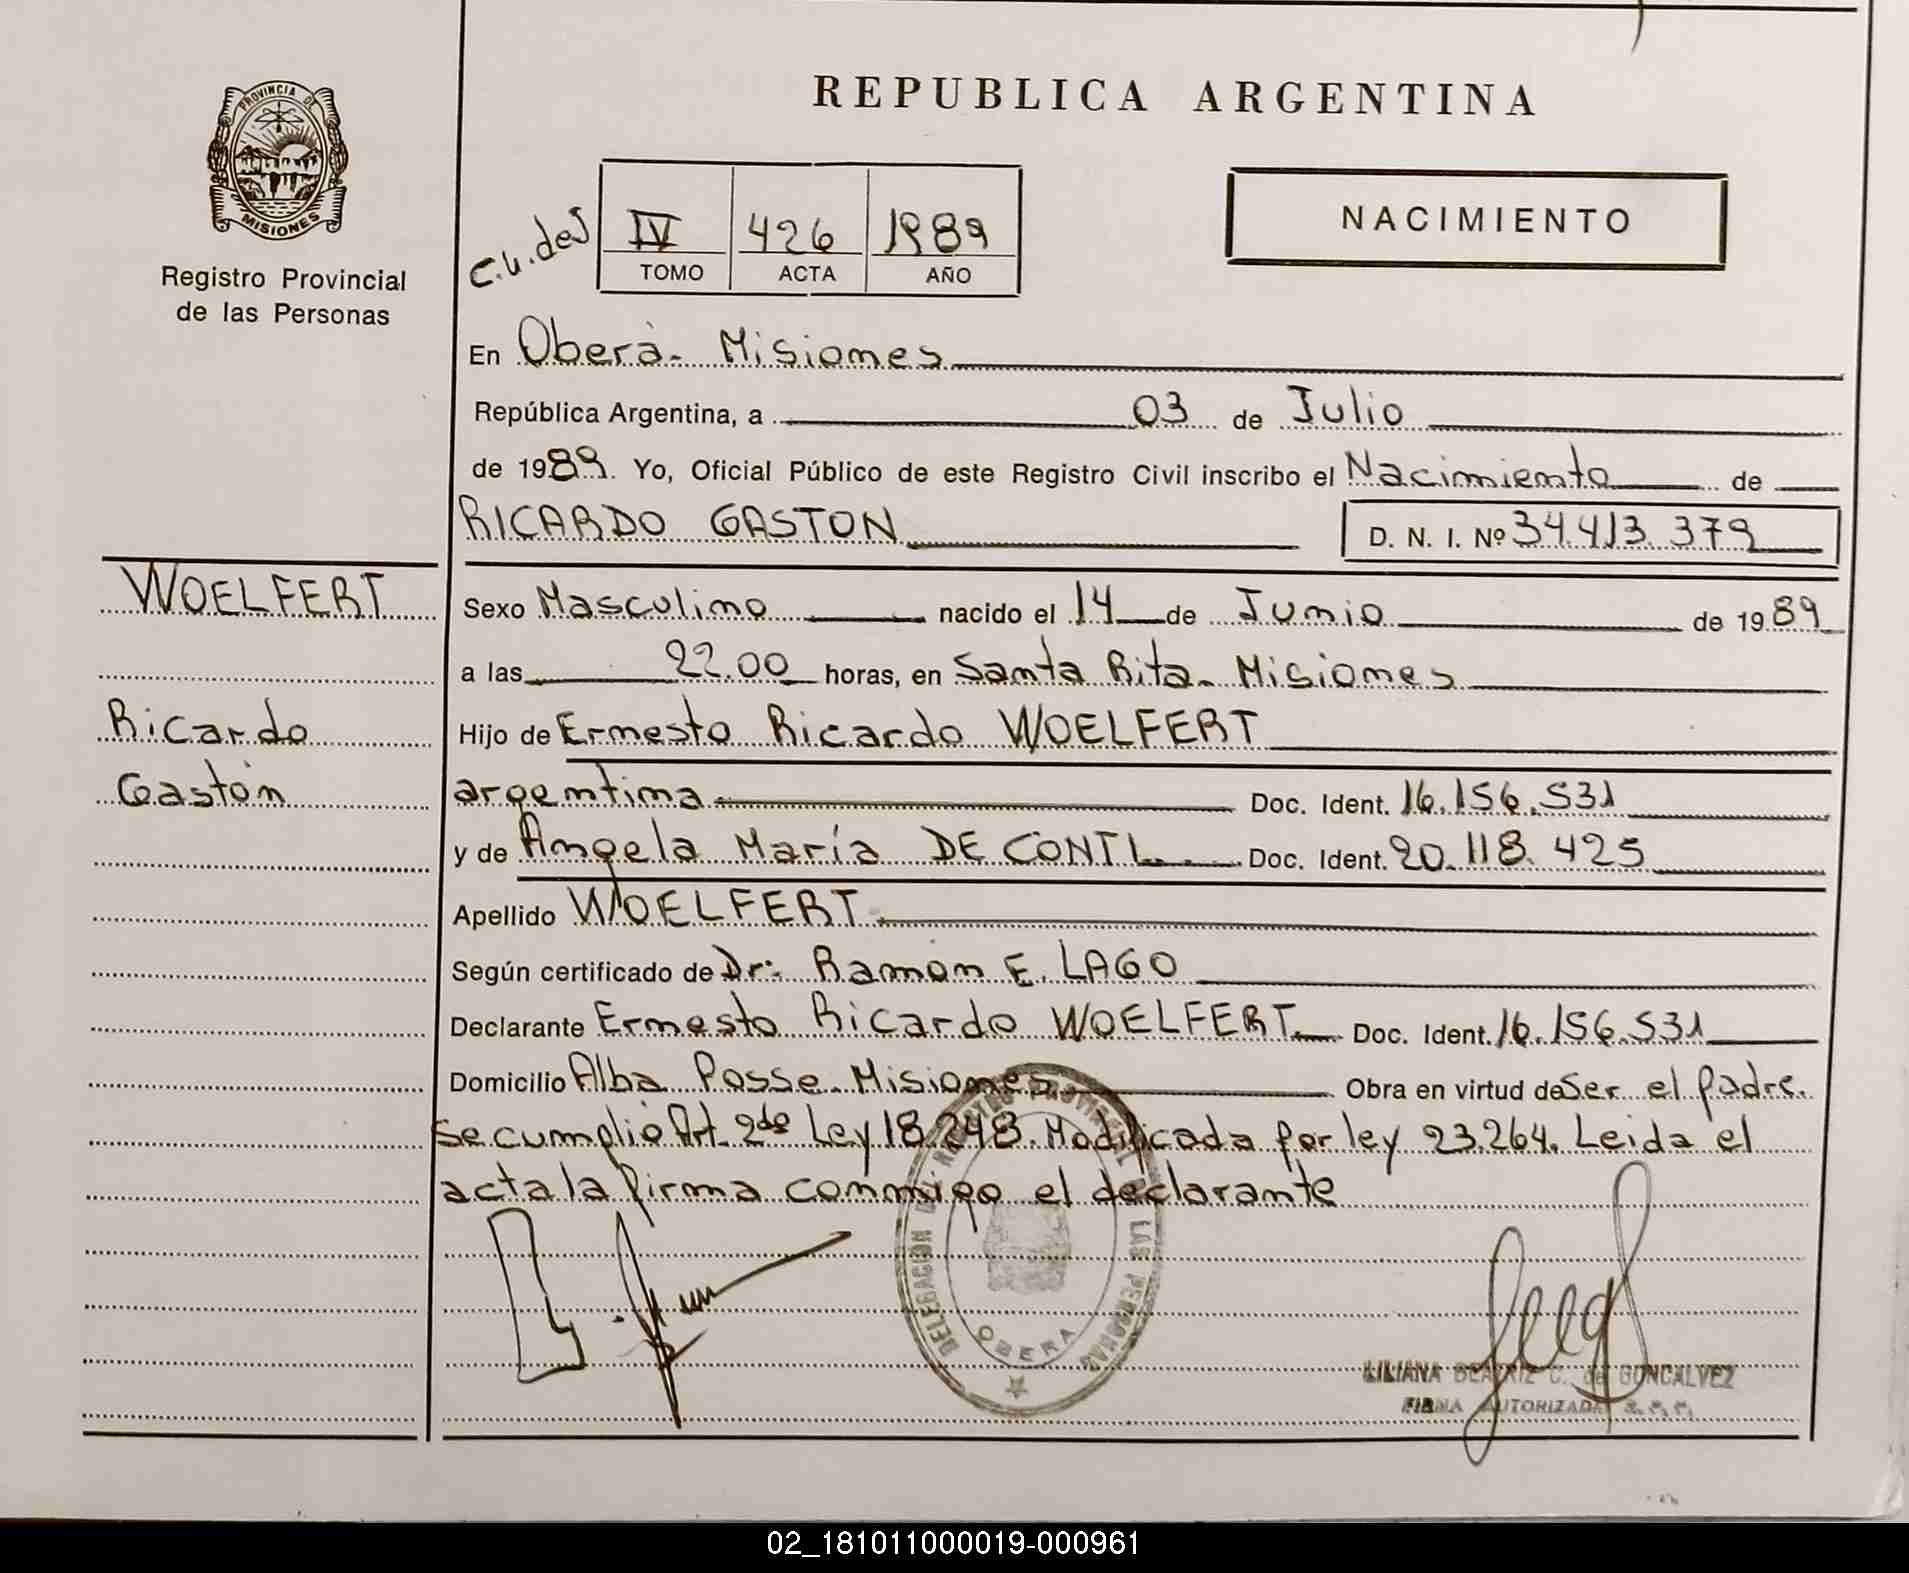 PROVINCIA DE
MISIONES
Registro Provincial
de las Personas
REPUBLICA ARGENTINA
IV 426 1989
TOMO ACTA AÑO
NACIMIENTO
En Oberá- Misiones
República Argentina, a 03 de Julio
de 1989. Yo, Oficial Público de este Registro Civil inscribo el Nacimiento de
RICARDO GASTON D. N. I. Nº 34.413.379
WOELFERT
Ricardo
Gastón
Sexo Masculino nacido el 14 de Junio de 1989
a las 22.00 horas, en Santa Rita- Misiones
Hijo de Ernesto Ricardo WOELFERT
argentina Doc. Ident. 16.156.531
y de Angela María DE CONTI Doc. Ident. 20.118.425
Apellido WOELFERT
Según certificado de Dr: Ramón E. LAGO
Declarante Ernesto Ricardo WOELFERT Doc. Ident. 16.156.531
Domicilio Alba Posse- Misiones Obra en virtud de Ser el padre.
Se cumplió Art. 2do Ley 18.248. Modificada por ley 23.264. Leida el
acta la firma conmigo el declarante
DELEGACION REGISTRO PROVINCIAL DE LAS PERSONAS
OBERA
LILIANA BEATRIZ C. de GONCALVEZ
FIRMA AUTORIZADA
02_181011000019-000961